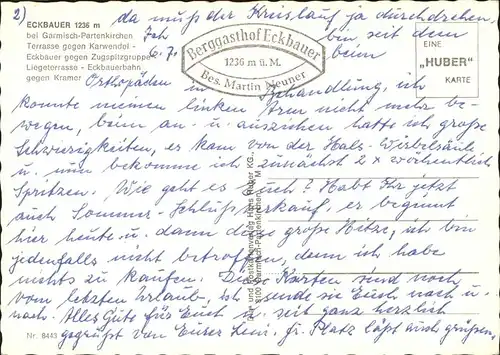 2) da muß der Kreislauf ja durchdrehen.
ECKBAUER 1236 m
bei Garmisch-Partenkirchen
Terrasse gegen Karwendel -
Eckbauer gegen Zugspitzgruppe
Liegeterrasse - Eckbauerbahn
gegen Kramer
Berggasthof Eckbauer
1236 m ü. M.
Bes. Martin Neuner
EINE
„HUBER"
KARTE
Ich bin seit dem
6.7. beim
Orthopäden in Behandlung, ich
konnte meinen linken Arm nicht mehr be-
wegen, beim an- u. ausziehen hatte ich große
Schwierigkeiten, er kam von der Hals-Wirbelsäule
u. nun bekomme ich zunächst 2 x wöchentlich
Spritzen. Wie geht es Euch? Habt Ihr jetzt
auch Sommer-Schlußverkauf, er beginnt
hier heute u. dann diese große Hitze, ich bin
jedenfalls nicht betroffen, denn ich habe
nichts zu kaufen. Die Karten sind noch
vom letzten Urlaub, ich sende sie Euch nach u.
nach. Alles Gute für Euch u. seit ganz herzlich
gegrüßt von Eurer Leni. Fr. Platz läßt auch grüßen.
Foto- und Postkartenverlag Hans Huber KG.
8100 Garmisch-Partenkirchen
Nr. 8443